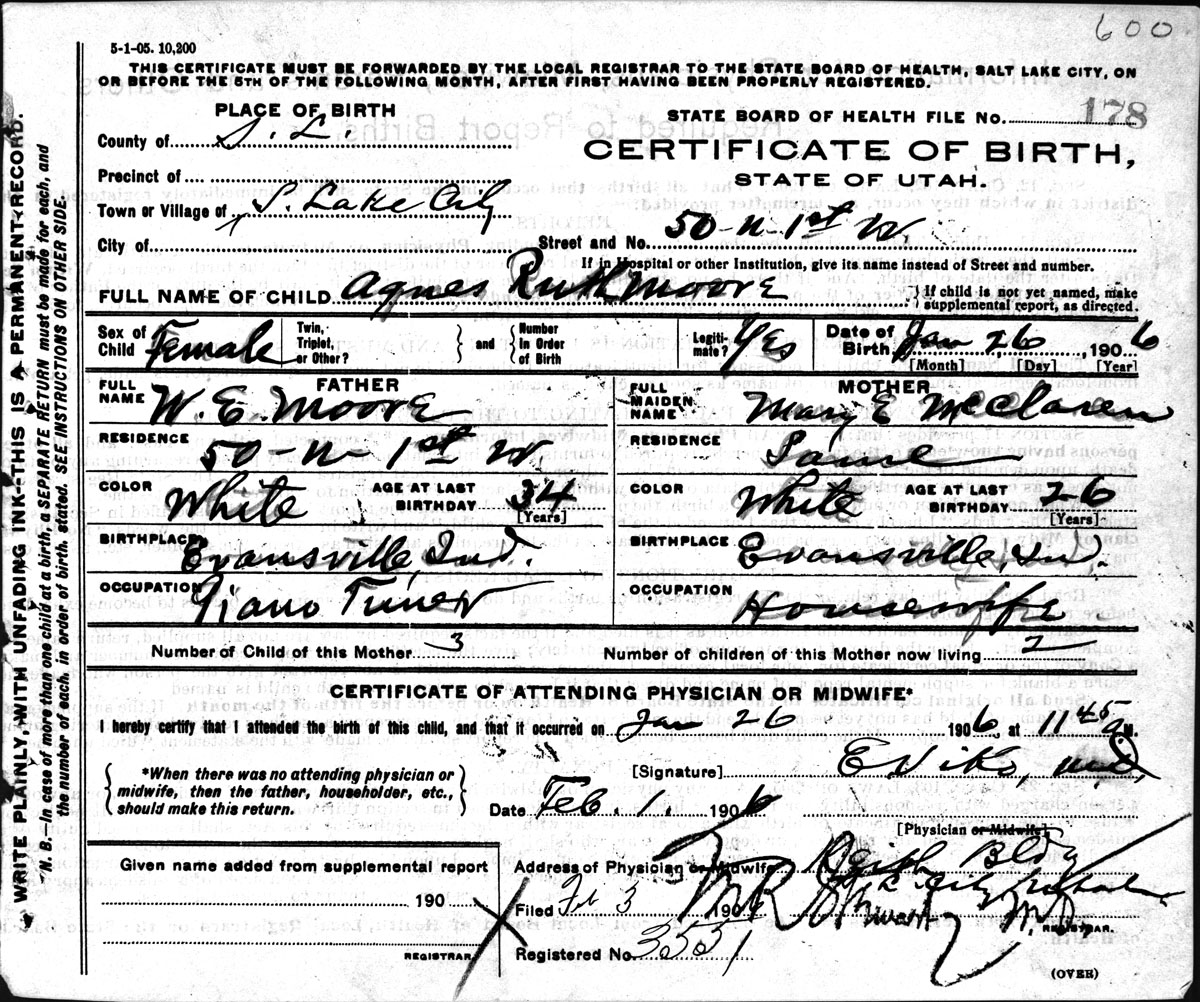 600
5-1-05. 10,200
THIS CERTIFICATE MUST BE FORWARDED BY THE LOCAL REGISTRAR TO THE STATE BOARD OF HEALTH, SALT LAKE CITY, ON
OR BEFORE THE 5TH OF THE FOLLOWING MONTH, AFTER FIRST HAVING BEEN PROPERLY REGISTERED.
WRITE PLAINLY, WITH UNFADING INK—THIS IS A PERMANENT RECORD.
N. B.—In case of more than one child at a birth, a SEPARATE RETURN must be made for each, and
the number of each, in order of birth, stated. SEE INSTRUCTIONS ON OTHER SIDE.
PLACE OF BIRTH
County of S. L.
Precinct of
Town or Village of S. Lake City
City of
STATE BOARD OF HEALTH FILE No. 178
CERTIFICATE OF BIRTH,
STATE OF UTAH.
Street and No. 50-N-1st W
If in Hospital or other Institution, give its name instead of Street and number.
FULL NAME OF CHILD Agnes Ruth Moore
If child is not yet named, make
supplemental report, as directed.
Sex of Child Female
Twin, Triplet, or Other?
and
Number in Order of Birth
Legiti-mate? Yes
Date of Birth Jan 26, 1906
[Month] [Day] [Year]
FATHER
FULL NAME W. E. Moore
RESIDENCE 50-N-1st W
COLOR White
AGE AT LAST BIRTHDAY 34
[Years]
BIRTHPLACE Evansville, Ind.
OCCUPATION Piano Tuner
MOTHER
FULL MAIDEN NAME Mary E McClaren
RESIDENCE Same
COLOR White
AGE AT LAST BIRTHDAY 26
[Years]
BIRTHPLACE Evansville, Ind.
OCCUPATION Housewife
Number of Child of this Mother 3
Number of children of this Mother now living 2
CERTIFICATE OF ATTENDING PHYSICIAN OR MIDWIFE*
I hereby certify that I attended the birth of this child, and that it occurred on Jan 26 1906, at 11 45 a M.
*When there was no attending physician or
midwife, then the father, householder, etc.,
should make this return.
[Signature]
Date Feb 1, 1906
[Physician or Midwife]
Given name added from supplemental report
190
REGISTRAR.
Address of Physician or Midwife Bldg
Filed Feb 3 190
REGISTRAR.
Registered No. 3551
(OVER)